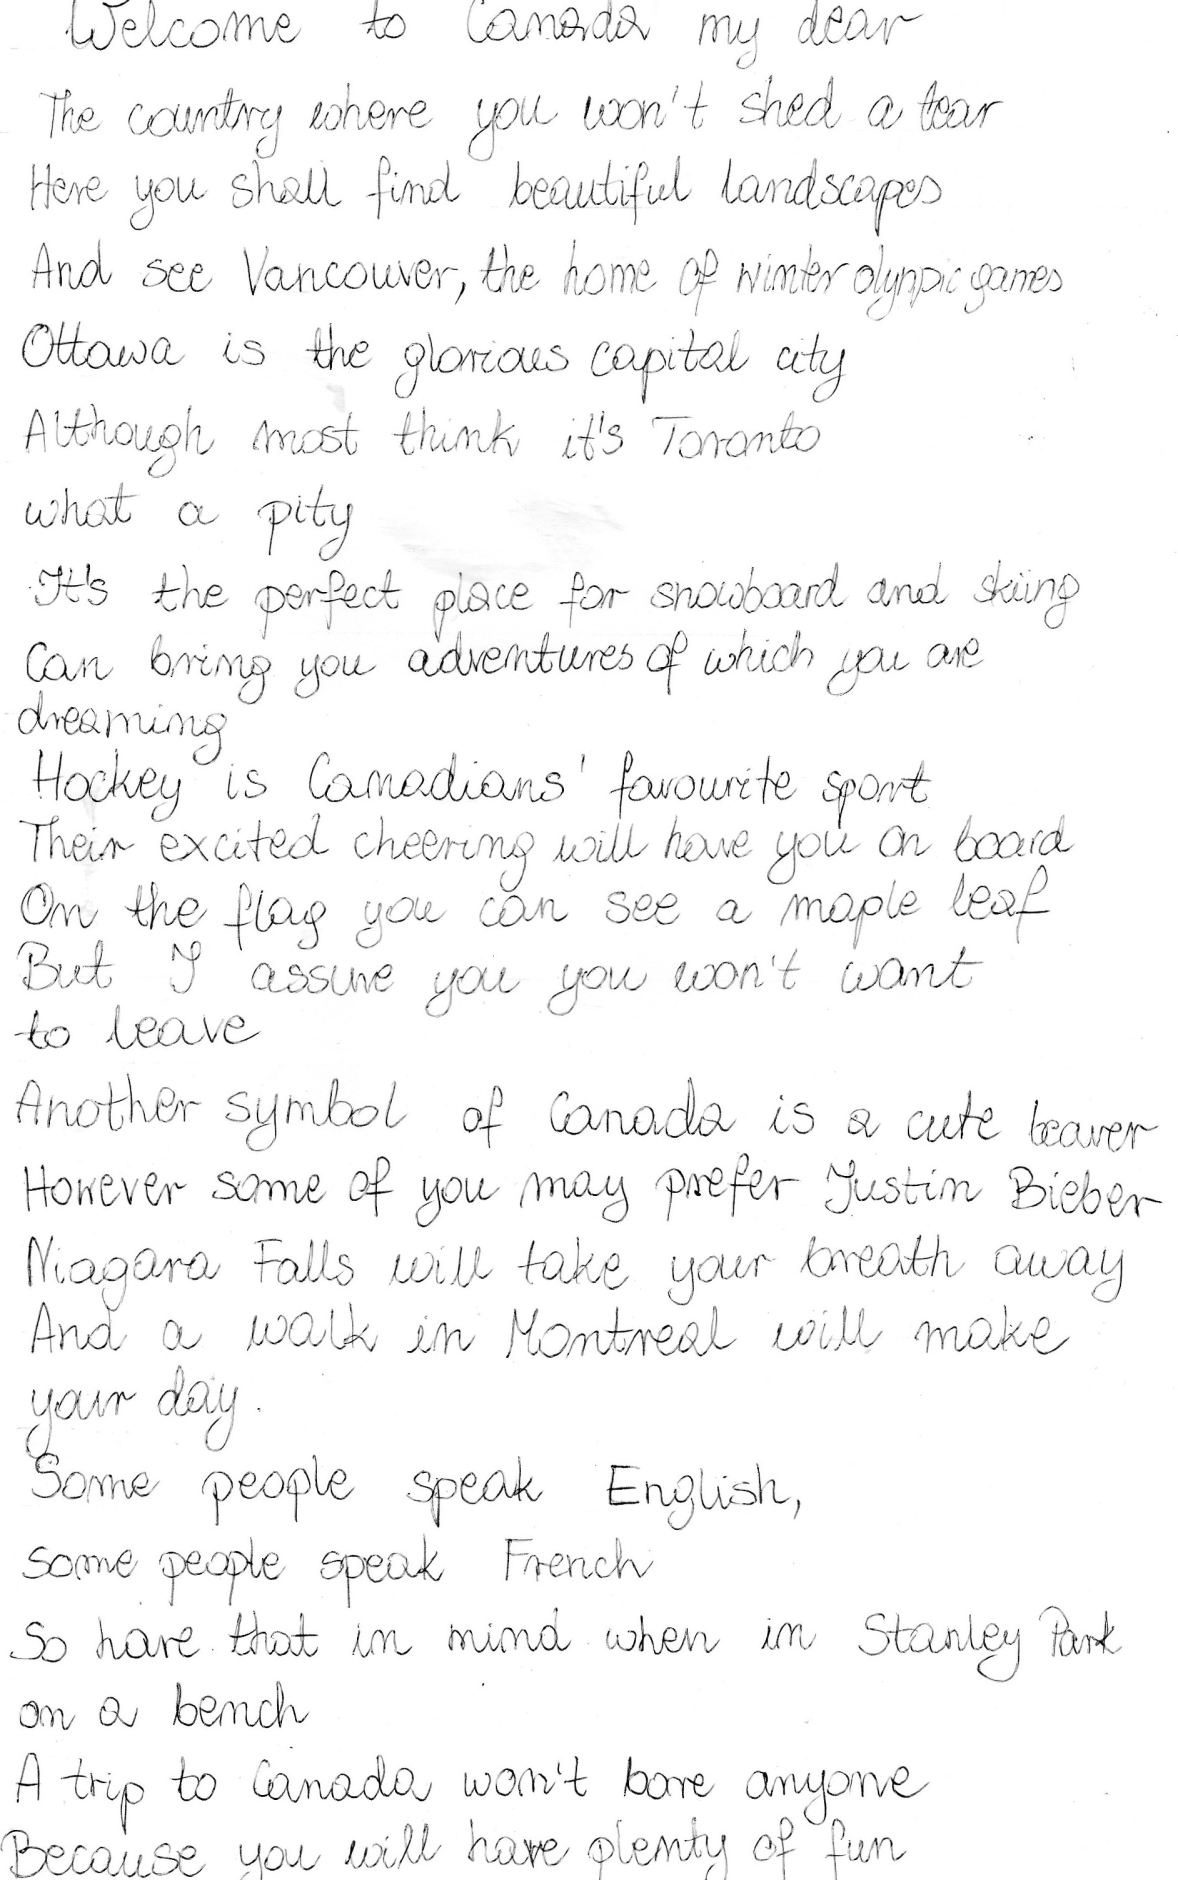 Welcome to Canada my dear
The country where you won't shed a tear
Here you shall find beautiful landscapes
And see Vancouver, the home of winter olympic games
Ottawa is the glorious capital city
Although most think it's Toronto
what a pity
It's the perfect place for snowboard and skiing
Can bring you adventures of which you are
dreaming
Hockey is Canadians' favourite sport
Their excited cheering will have you on board
On the flag you can see a maple leaf
But I assure you you won't want
to leave
Another symbol of Canada is a cute beaver
However some of you may prefer Justin Bieber
Niagara Falls will take your breath away
And a walk in Montreal will make
your day.
Some people speak English,
some people speak French
So have that in mind when in Stanley Park
on a bench
A trip to Canada won't bore anyone
Because you will have plenty of fun